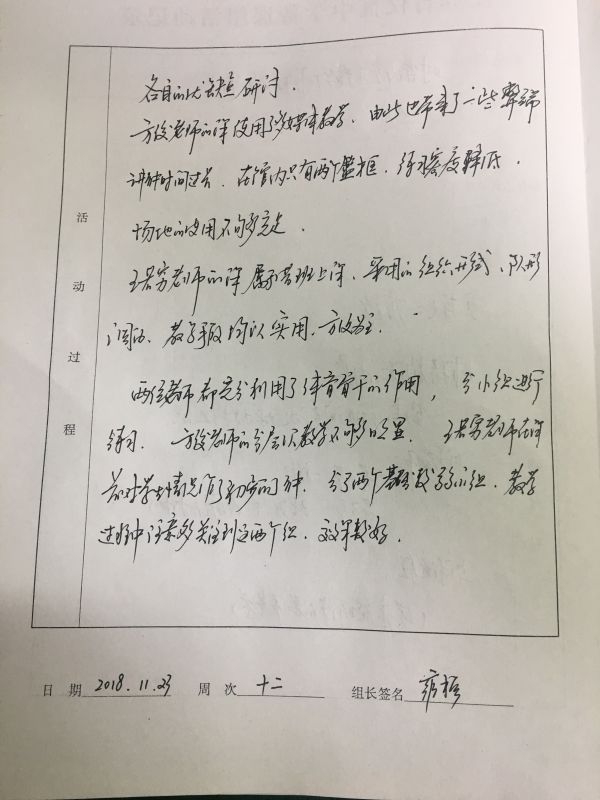 各自的优缺点研讨.
方俊老师的课使用了多媒体教学、由此也带来了一些弊端
讲解时间过长. 在馆内只有两个篮框, 练习密度降低.
场地的使用不够充足.
王若穷老师的课属于常班上课、采用的组织形式、队形
调动、教学手段均以实用、方便为主.
两位教师都充分利用了体育骨干的作用, 分小组进行
练习. 方俊老师的分层次教学不够明显. 王若穷老师在课
前对学生情况作了初步的了解. 分了两个基础较弱小组. 教学
过程中注意多关注到这两个组. 效果较好.
活动过程
日 期 2018.11.23 周 次 十二 组长签名